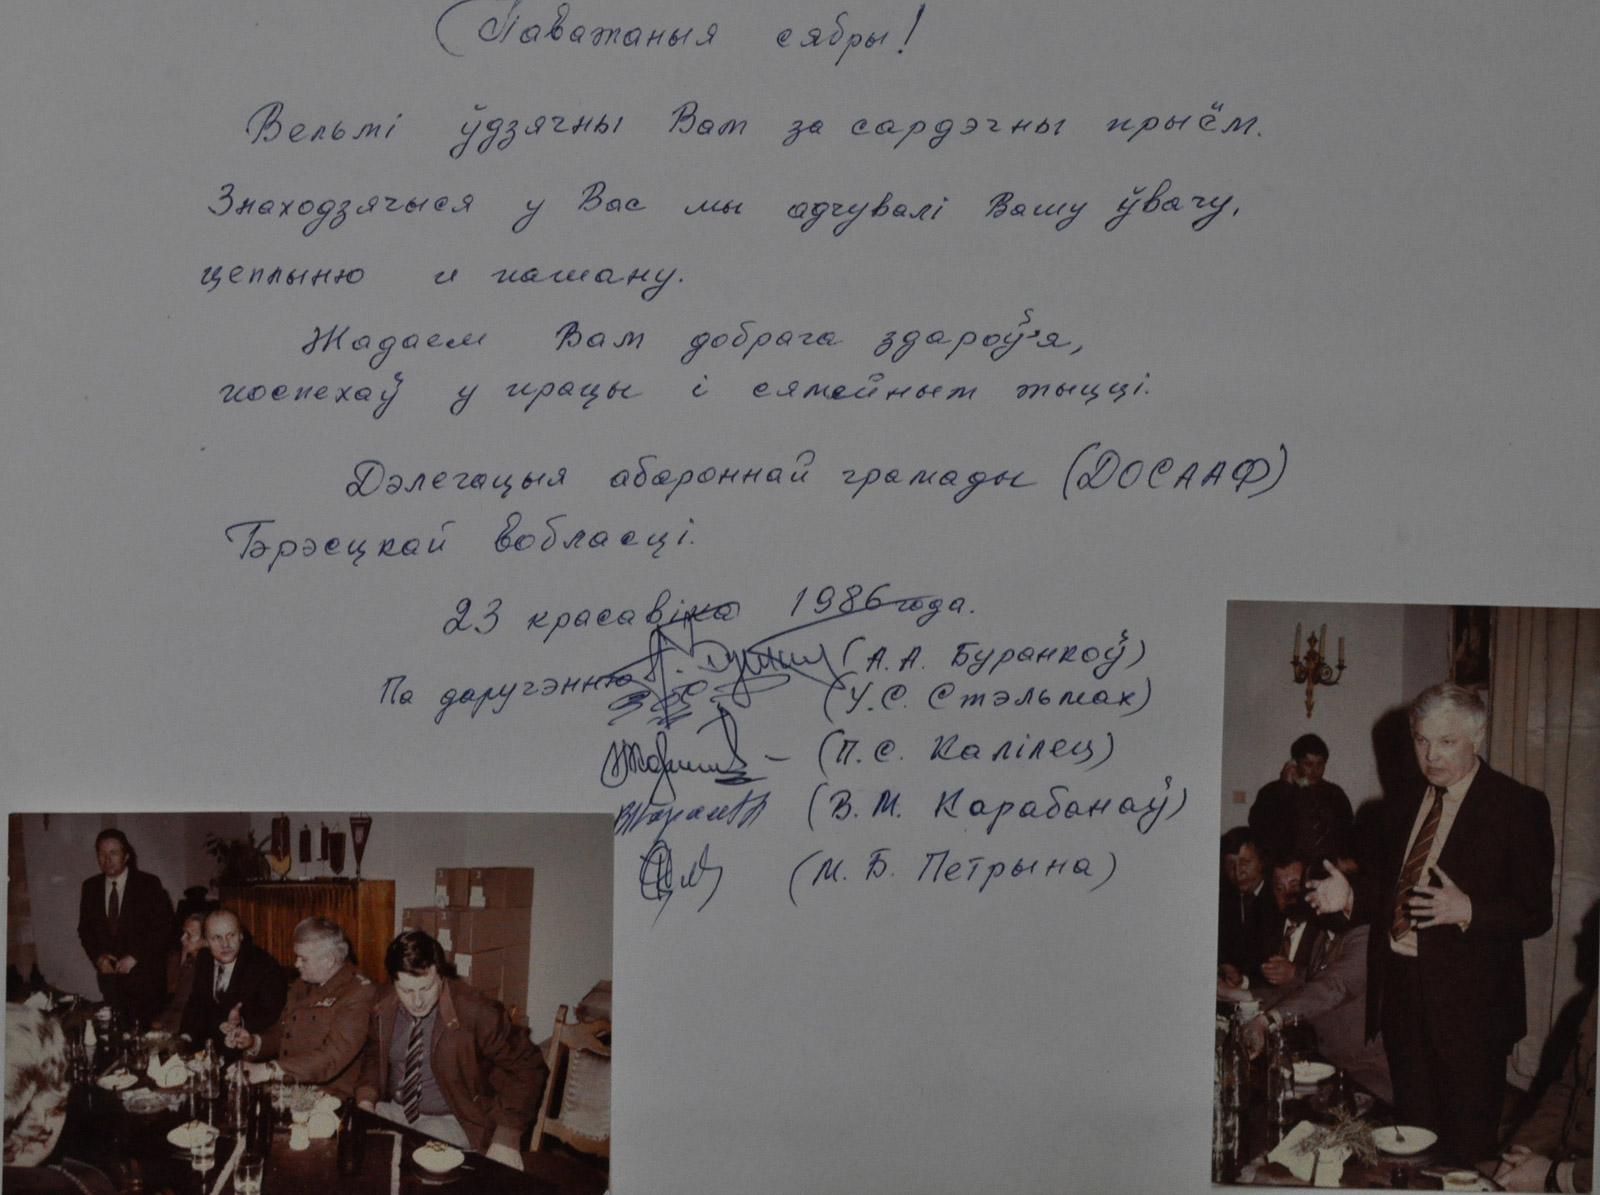 Паважаныя сябры!
Вельмі ўдзячны Вам за сардэчны прыём.
Знаходзячыся у Вас мы адчувалі Вашу ўвагу,
цеплыню и пашану.
Жадаем Вам добрага здароў'я,
поспехаў у працы і сямейным жыцці.
Дэлегацыя абароннай грамады (ДОСААФ)
Брэсцкай вобласці.
23 красавіка 1986 года.
Па даручэнню (А.А. Буранкоў)
(У.С. Стэльмах)
(П.С. Калілец)
(В.М. Карабанаў)
(М.Б. Петрына)